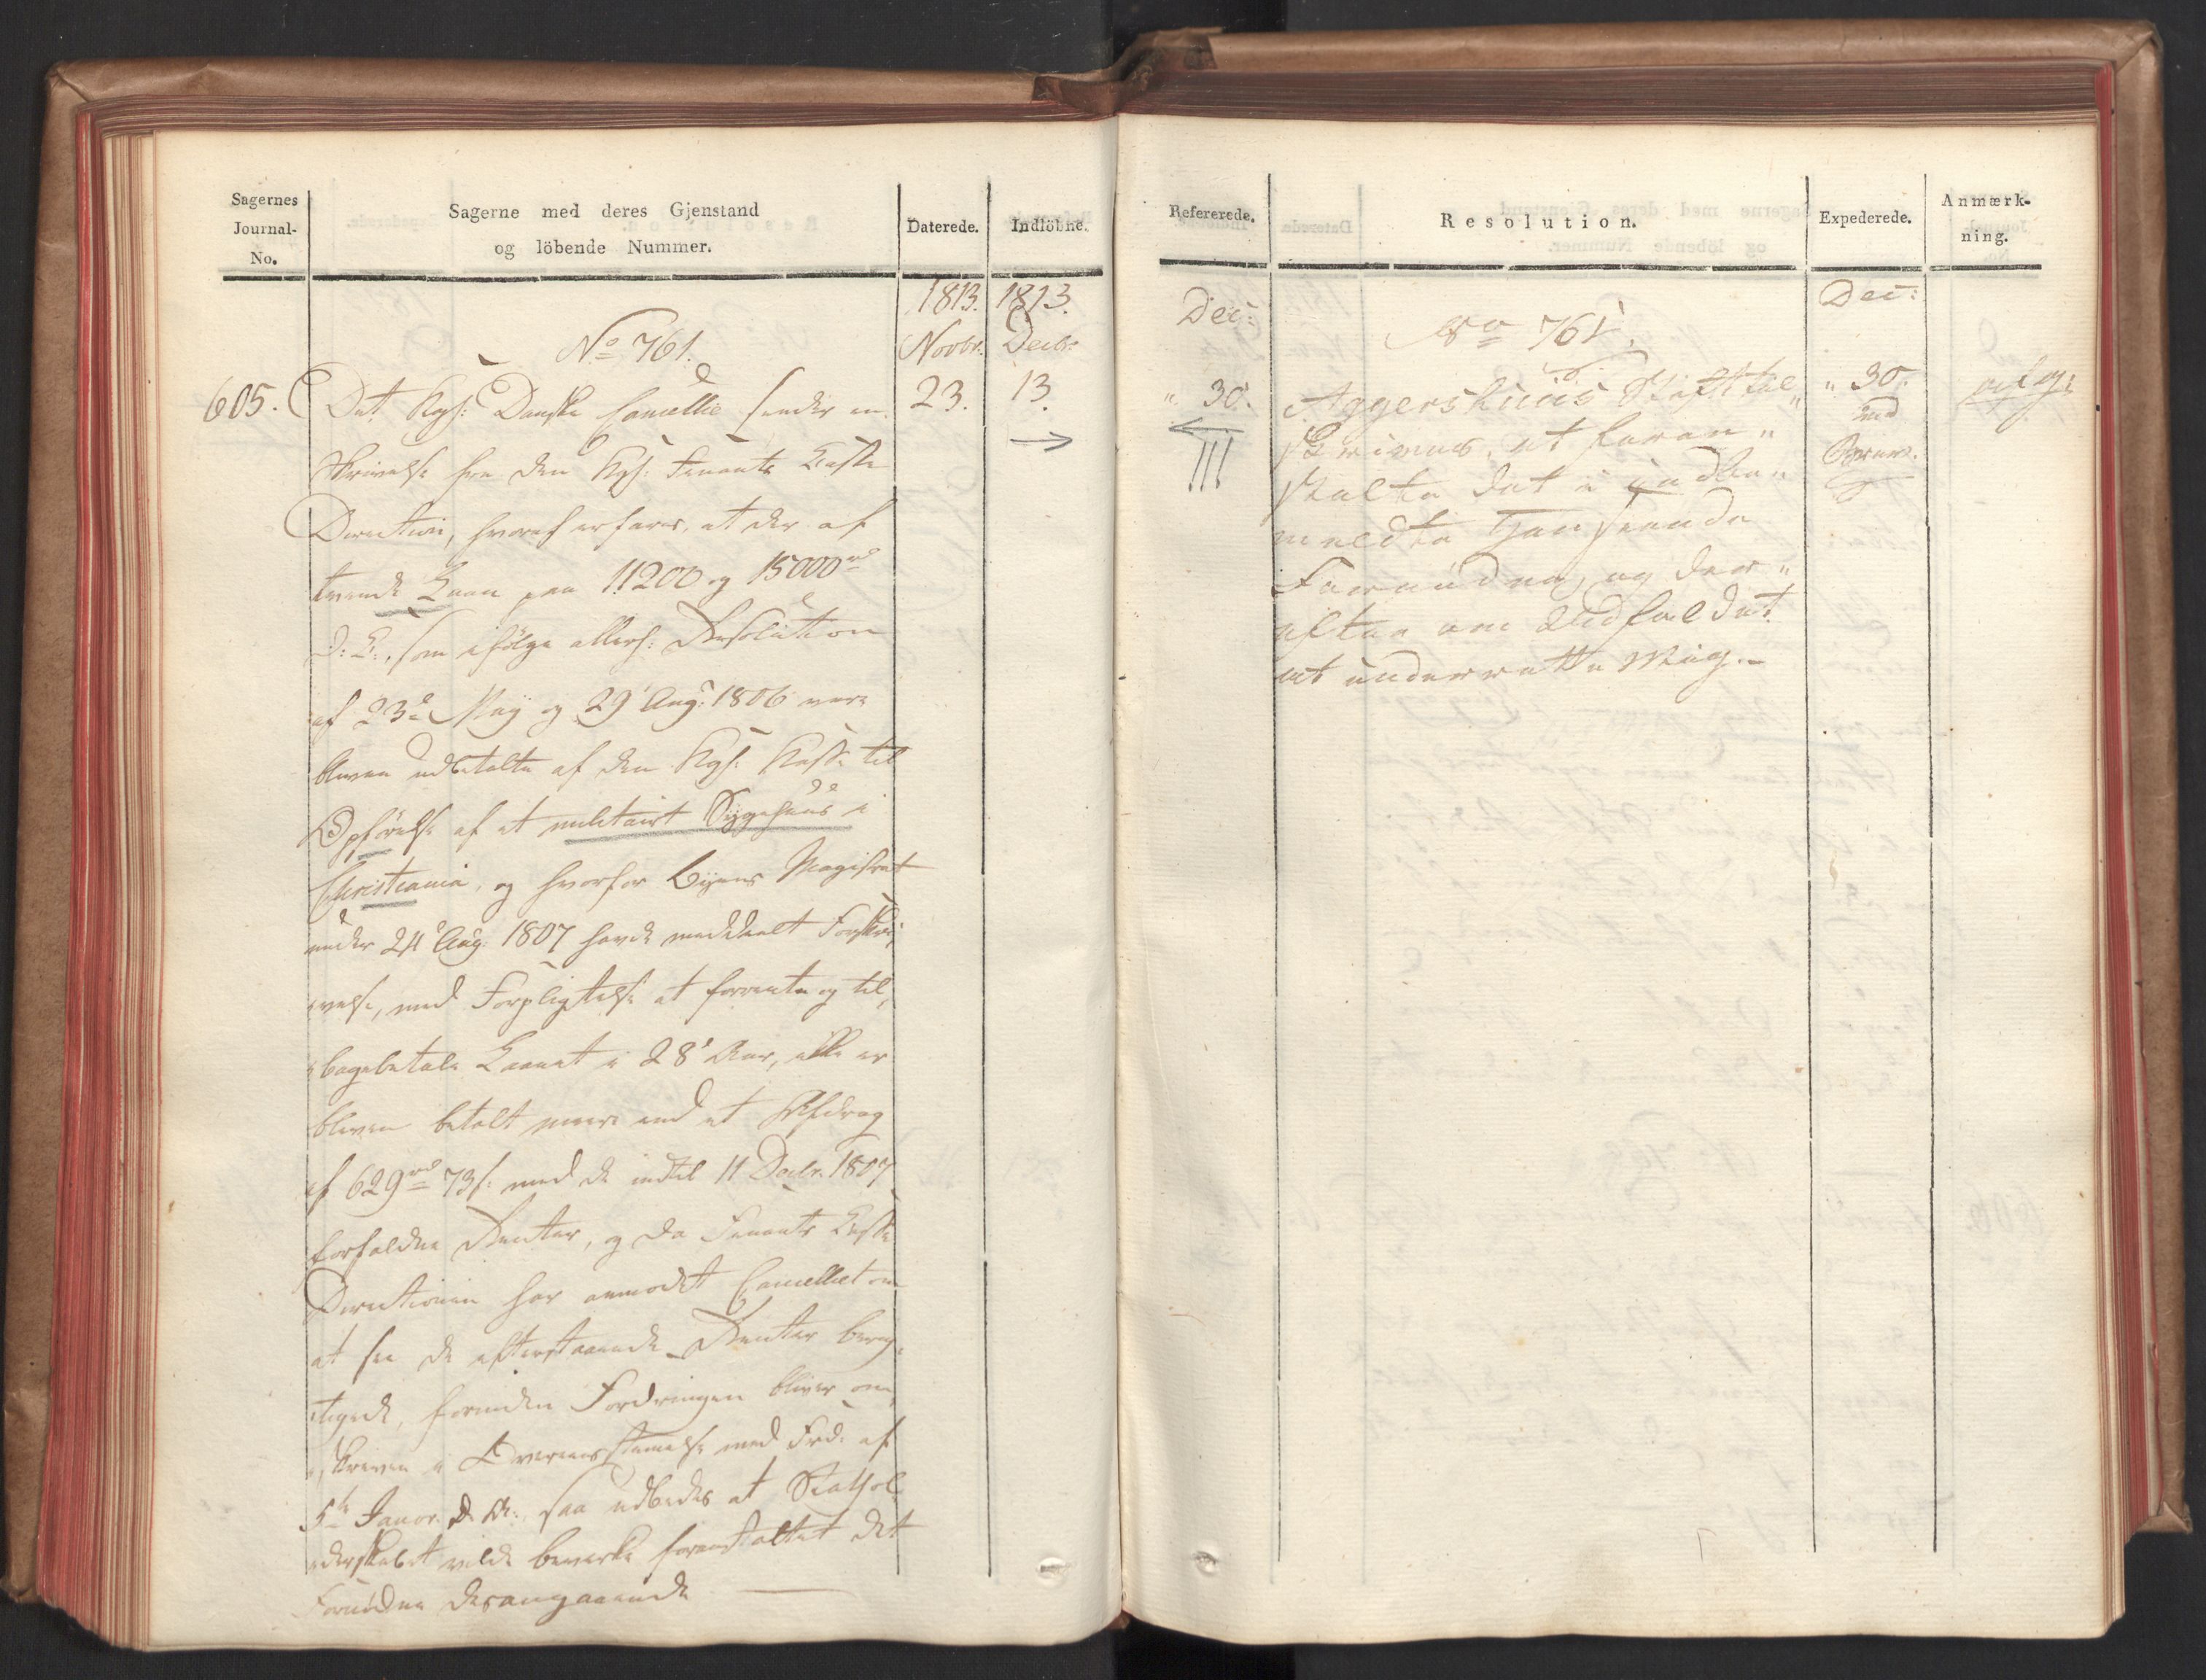 Sagernes
Journal-
No.
Sagerne med deres Gjenstand
og löbende Nummer.
Daterede.
Indlöbne.
1813.
1813.
Novbr.
Decbr.
No 761.
605.
23.
13.
Det Kgl: Danske Cancellie sender en
Skrivelse fra den Kgl: Finants Casse
Direction, hvoraf erfares, at der af
tvende Laan paa 11200 og 15000 rd
D: C:, som ifölge allerh: Resolution
af 23de May og 29 Aug: 1806 vare
blevne udbetalte af den Kgl: Kasse til
Opförelse af et militairt Sygehuus i
Christiania, og hvorfor Byens Magistrat
under 24 Aug: 1807 havde meddeelt Forskri,
,velse, med Forpligtelse at forrente og til,
,bagebetale Laanet i 28 Aar, ikke er
bleven betalt mere end et Afdrag
af 629 rd 73 s: med de indtil 11 Decbr. 1807
forfaldne Renter, og da Finants Casse
Directionen har anmodet Cancelliet om
at see de efterstaaende Renter berig,
,tigede, forinden Fordringen bliver om,
,skreven i Overeensstemmelse med Frd: af
5te Janor. d. A:, saa udbedes at Stathol,
,derskabet vilde bevirke foranstaltet det
Fornödne desangaaende
Refererede.
Resolution.
Expederede.
Anmærk-
ning.
Dec:
Dec:
No 761.
" 30.
" 30.
Aggershuus Stift til,,
skrives, at foran"
stalte det i
meldte Henseende
Fornödne, og der"
efter om Udfaldet
at underrette Mig.